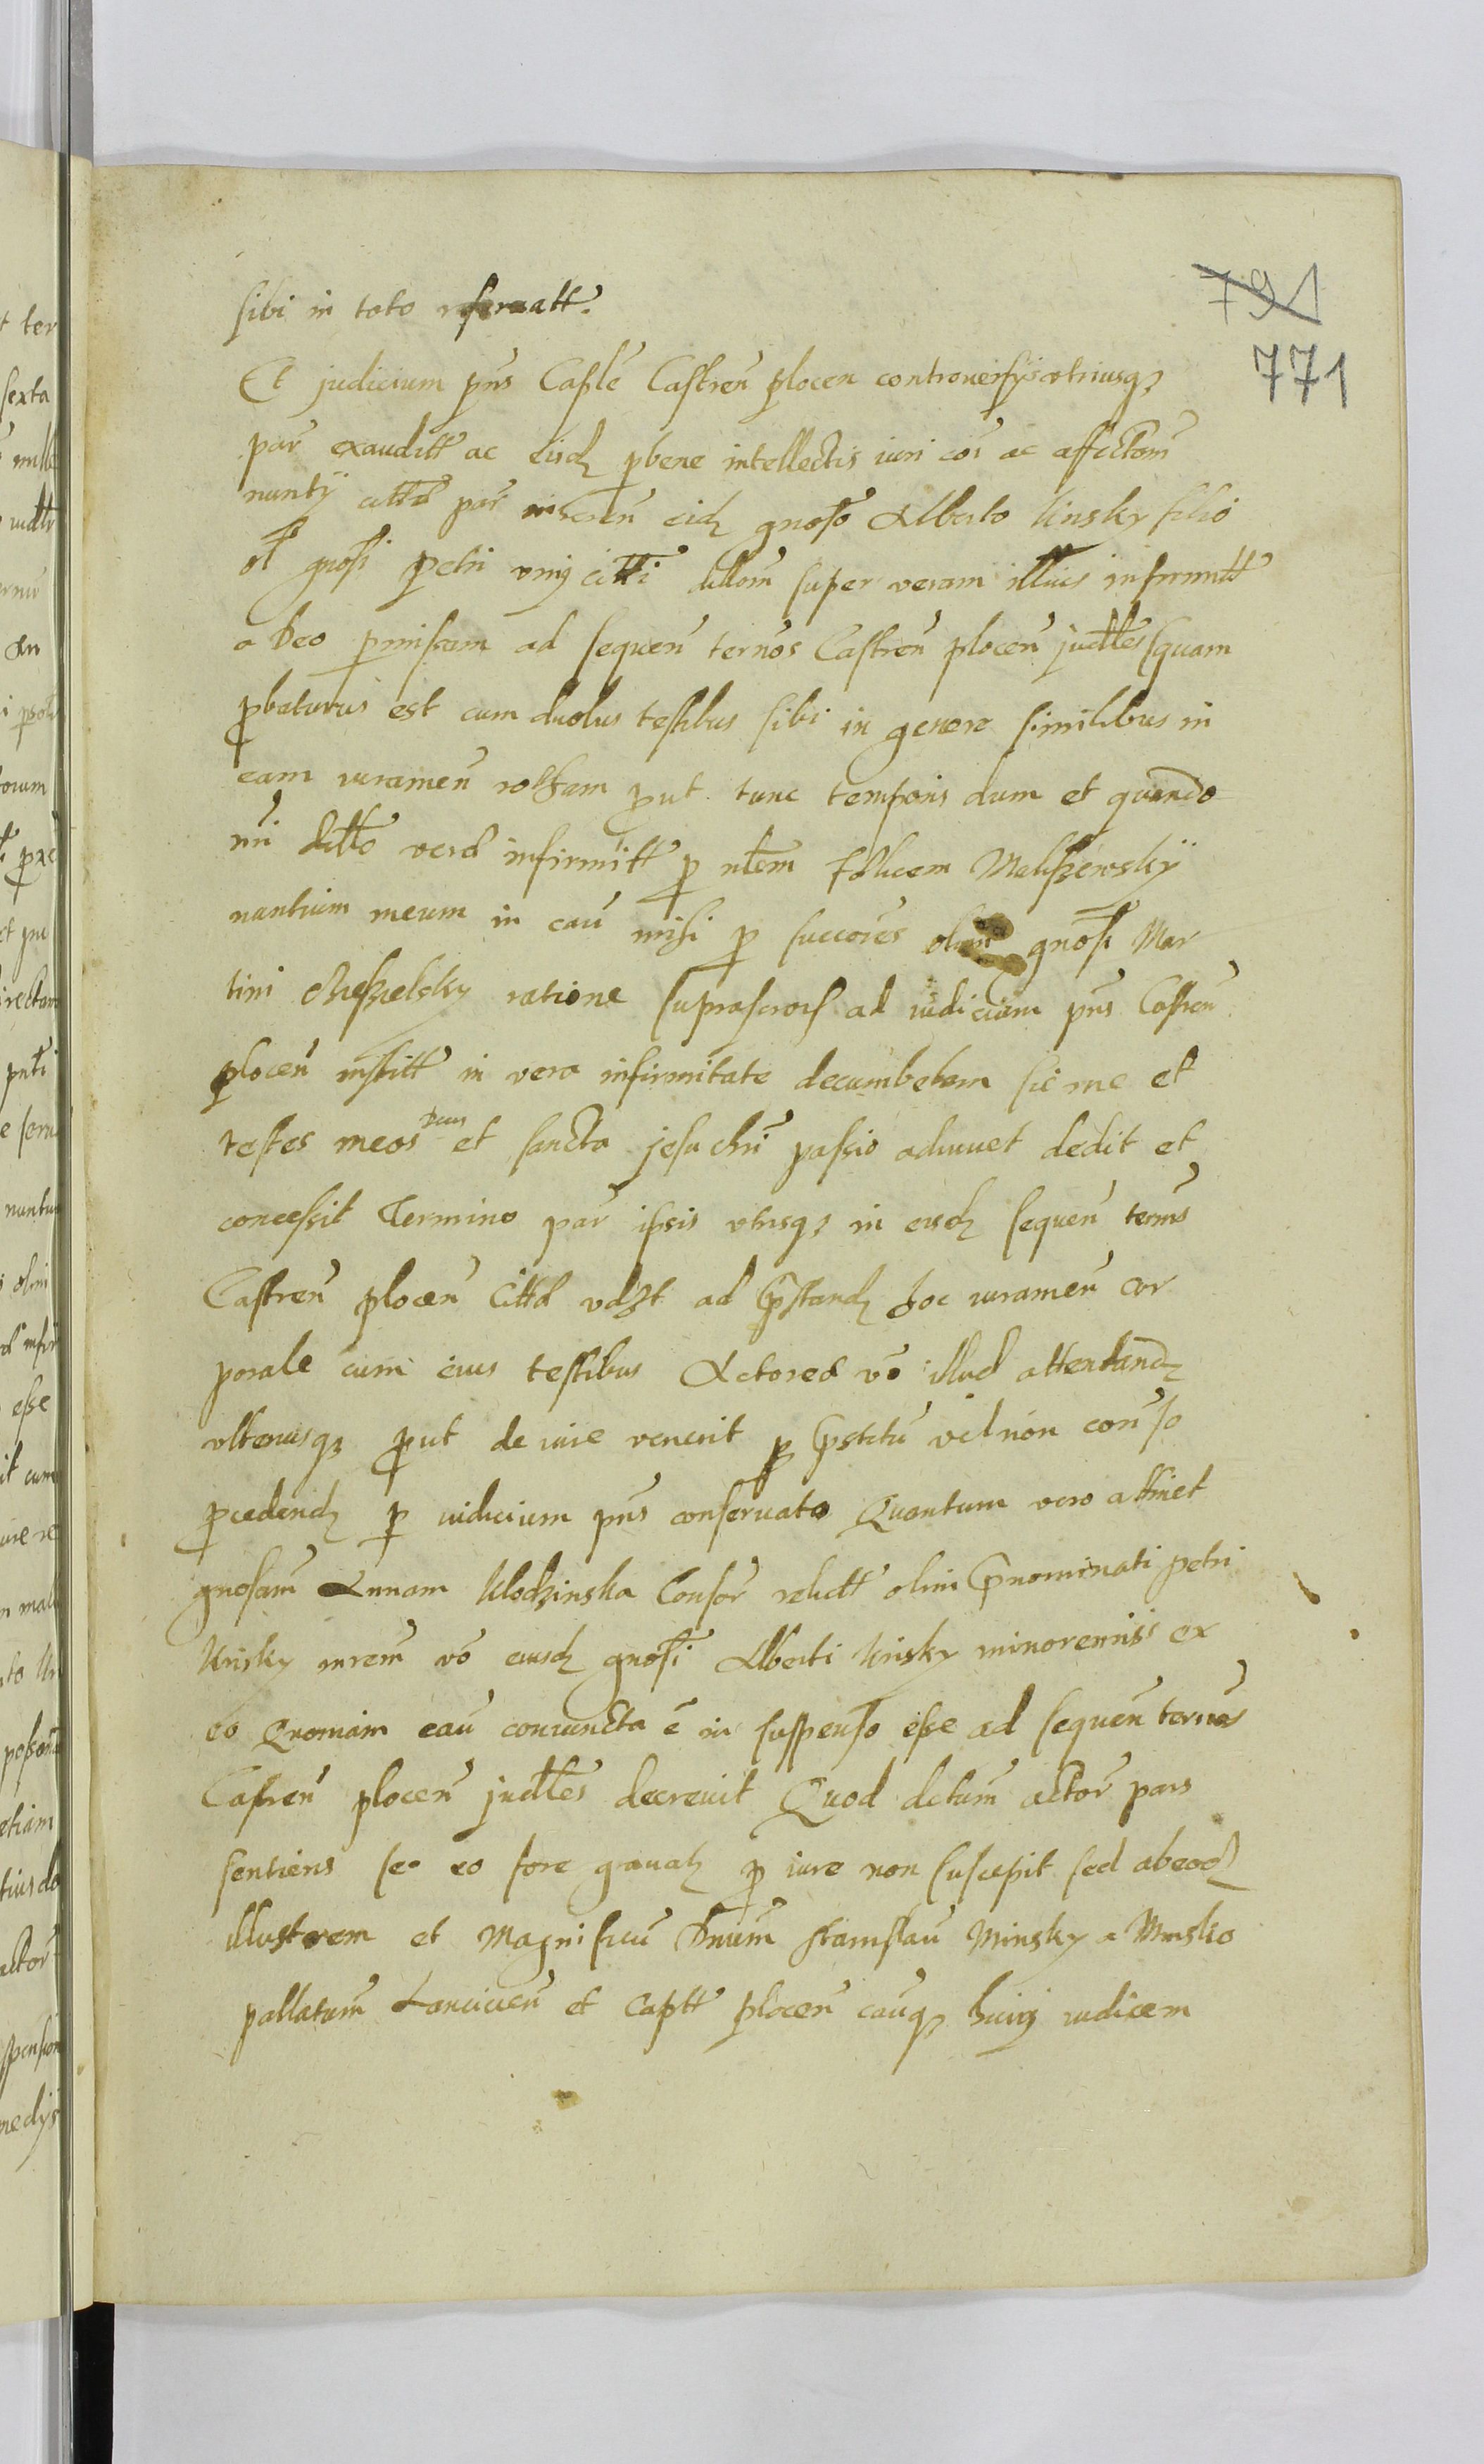 791
771
sibi in toto reseruatt.
Et judicium pns Caple Castren plocen controuersijs vtriusq3
par exauditt ac eisd pbene intellectis iuri coi ac affectom
nuntij cittd par inheren eid gnoso Alberto Kinsky filio
ol gnosi Petri vnij citti dillom super veram illius infirmitt
a Deo pmissam ad sequen ternos Castren plocen judlles (quam
pbaturus est cum duobus testibus sibi in genere similibus in
eam iuramen rottam put tunc temporis dum et quando
mi dillo vera infirmitt p nlem Maliszewskÿ
nuntium meum in cau misi p succores olim gnosi Mar
tini ratione suprascrors ad iudicium pns Castren
plocen instittt in vera infirmitate decumbebam sic me et
testes meos Deus et sancta jesu chri passio adiuuet dedit et
concessit Termino par ipsis vtrisq3 in eisd sequen terns
Castren plocen Cittd vdzt ad pstand hoc iuramen cor
porale cum eius testibus Actorea vo illud attentand
vlteriusq3 put de iure venerit p pstitu vel non conso
pcedend p iudicium pns conseruato Quantum vero attinet
gnosam Annam Klodzinska Consor relictt olim pnominati Petri
Kinsky mrem vo eiusd gnosi Alberti Kinsky minorennis ex
eo Quoniam cau coniuncta e in suspenso esse ad sequen ternos
Castren plocen judlles decreuit Quod dctum actor pars
sentiens se eo fore grauat p iure non suscepit sed ab eod
illustrem et Magnificu Dnum Stanislau Minsky a Minsko
pallatum Lancicien et Captt plocen cauq3 huius iudicem